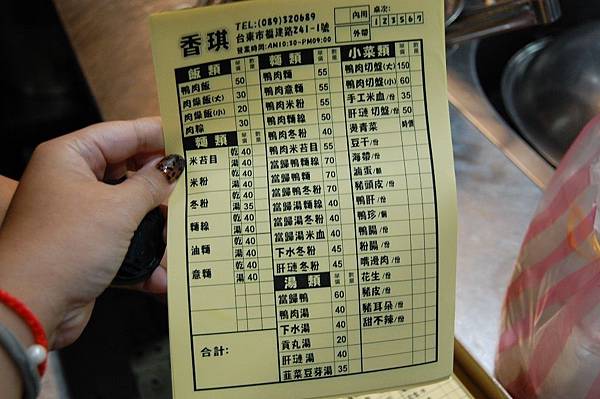 香琪
TEL:(089)320689
台東市福建路241-1號
營業時間:AM10:30-PM09:00
內用
外帶
桌次:
1 2 3 5 6 7
飯類 單價 數量
鴨肉飯 50
肉燥飯(大) 30
肉燥飯(小) 20
肉粽 30
麵類 單價 數量
米苔目 乾 40
湯 40
米粉 乾 40
湯 40
冬粉 乾 40
湯 35
麵線 乾 40
湯 40
油麵 乾 40
湯 40
意麵 乾 40
湯 40
合計:
麵類 單價 數量
鴨肉麵 55
鴨肉意麵 55
鴨肉米粉 55
鴨肉麵線 50
鴨肉冬粉 40
鴨肉米苔目 55
當歸鴨麵線 70
當歸鴨麵 70
當歸鴨冬粉 70
當歸湯麵線 40
當歸湯冬粉 40
當歸湯米血 40
下水冬粉 45
肝連冬粉 45
湯類 單價 數量
當歸鴨 60
鴨肉湯 40
下水湯 40
貢丸湯 20
肝連湯 40
韭菜豆芽湯 35
小菜類 單價 數量
鴨肉切盤(大) 150
鴨肉切盤(小) 60
手工米血/份 35
肝連切盤/份 50
燙青菜 時價
豆干/份
海帶/份
滷蛋/顆
豬頭皮/份
鴨肝/份
鴨珍/個
鴨腸/份
粉腸/份
嘴邊肉/份
花生/份
豬皮/份
豬耳朵/份
甜不辣/份